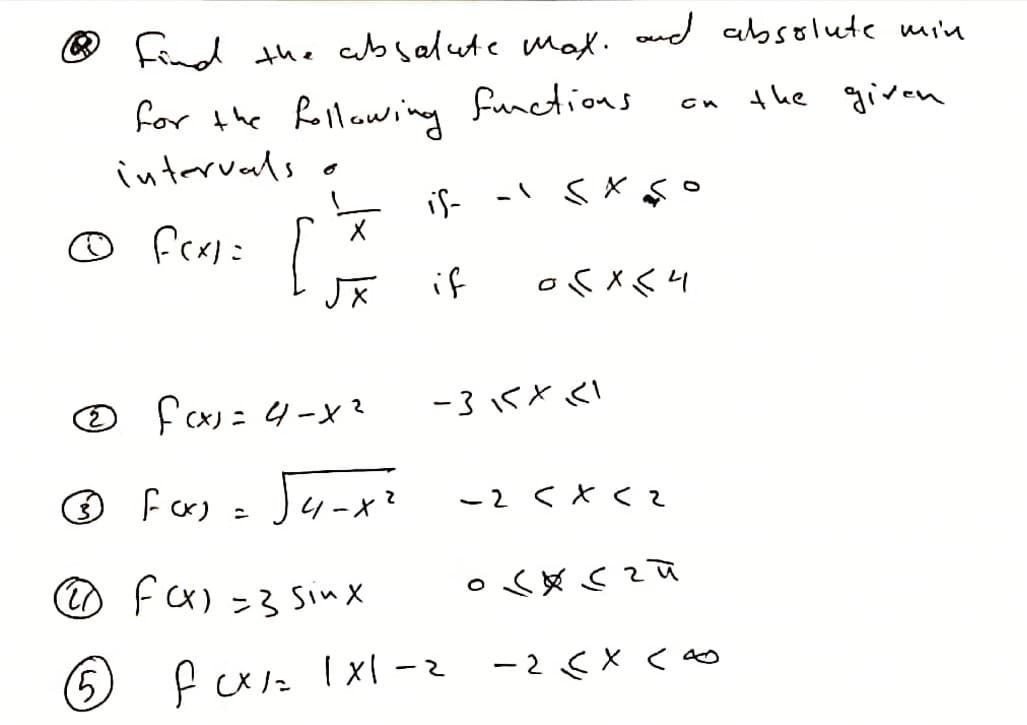 Ⓠ Find the absalute max. and absolute min
for the following functions on the given
intervals.
① f(x) = [ 1/x if -1 ≤ x ≤ 0
√x if 0 ≤ x ≤ 4
② f(x) = 4-x² -3 ≤ x ≤ 1
③ f(x) = √4-x² -2 < x < 2
④ f(x) = 3 sin x 0 ≤ x ≤ 2π
⑤ f(x) = |x| - 2 -2 ≤ x < ∞